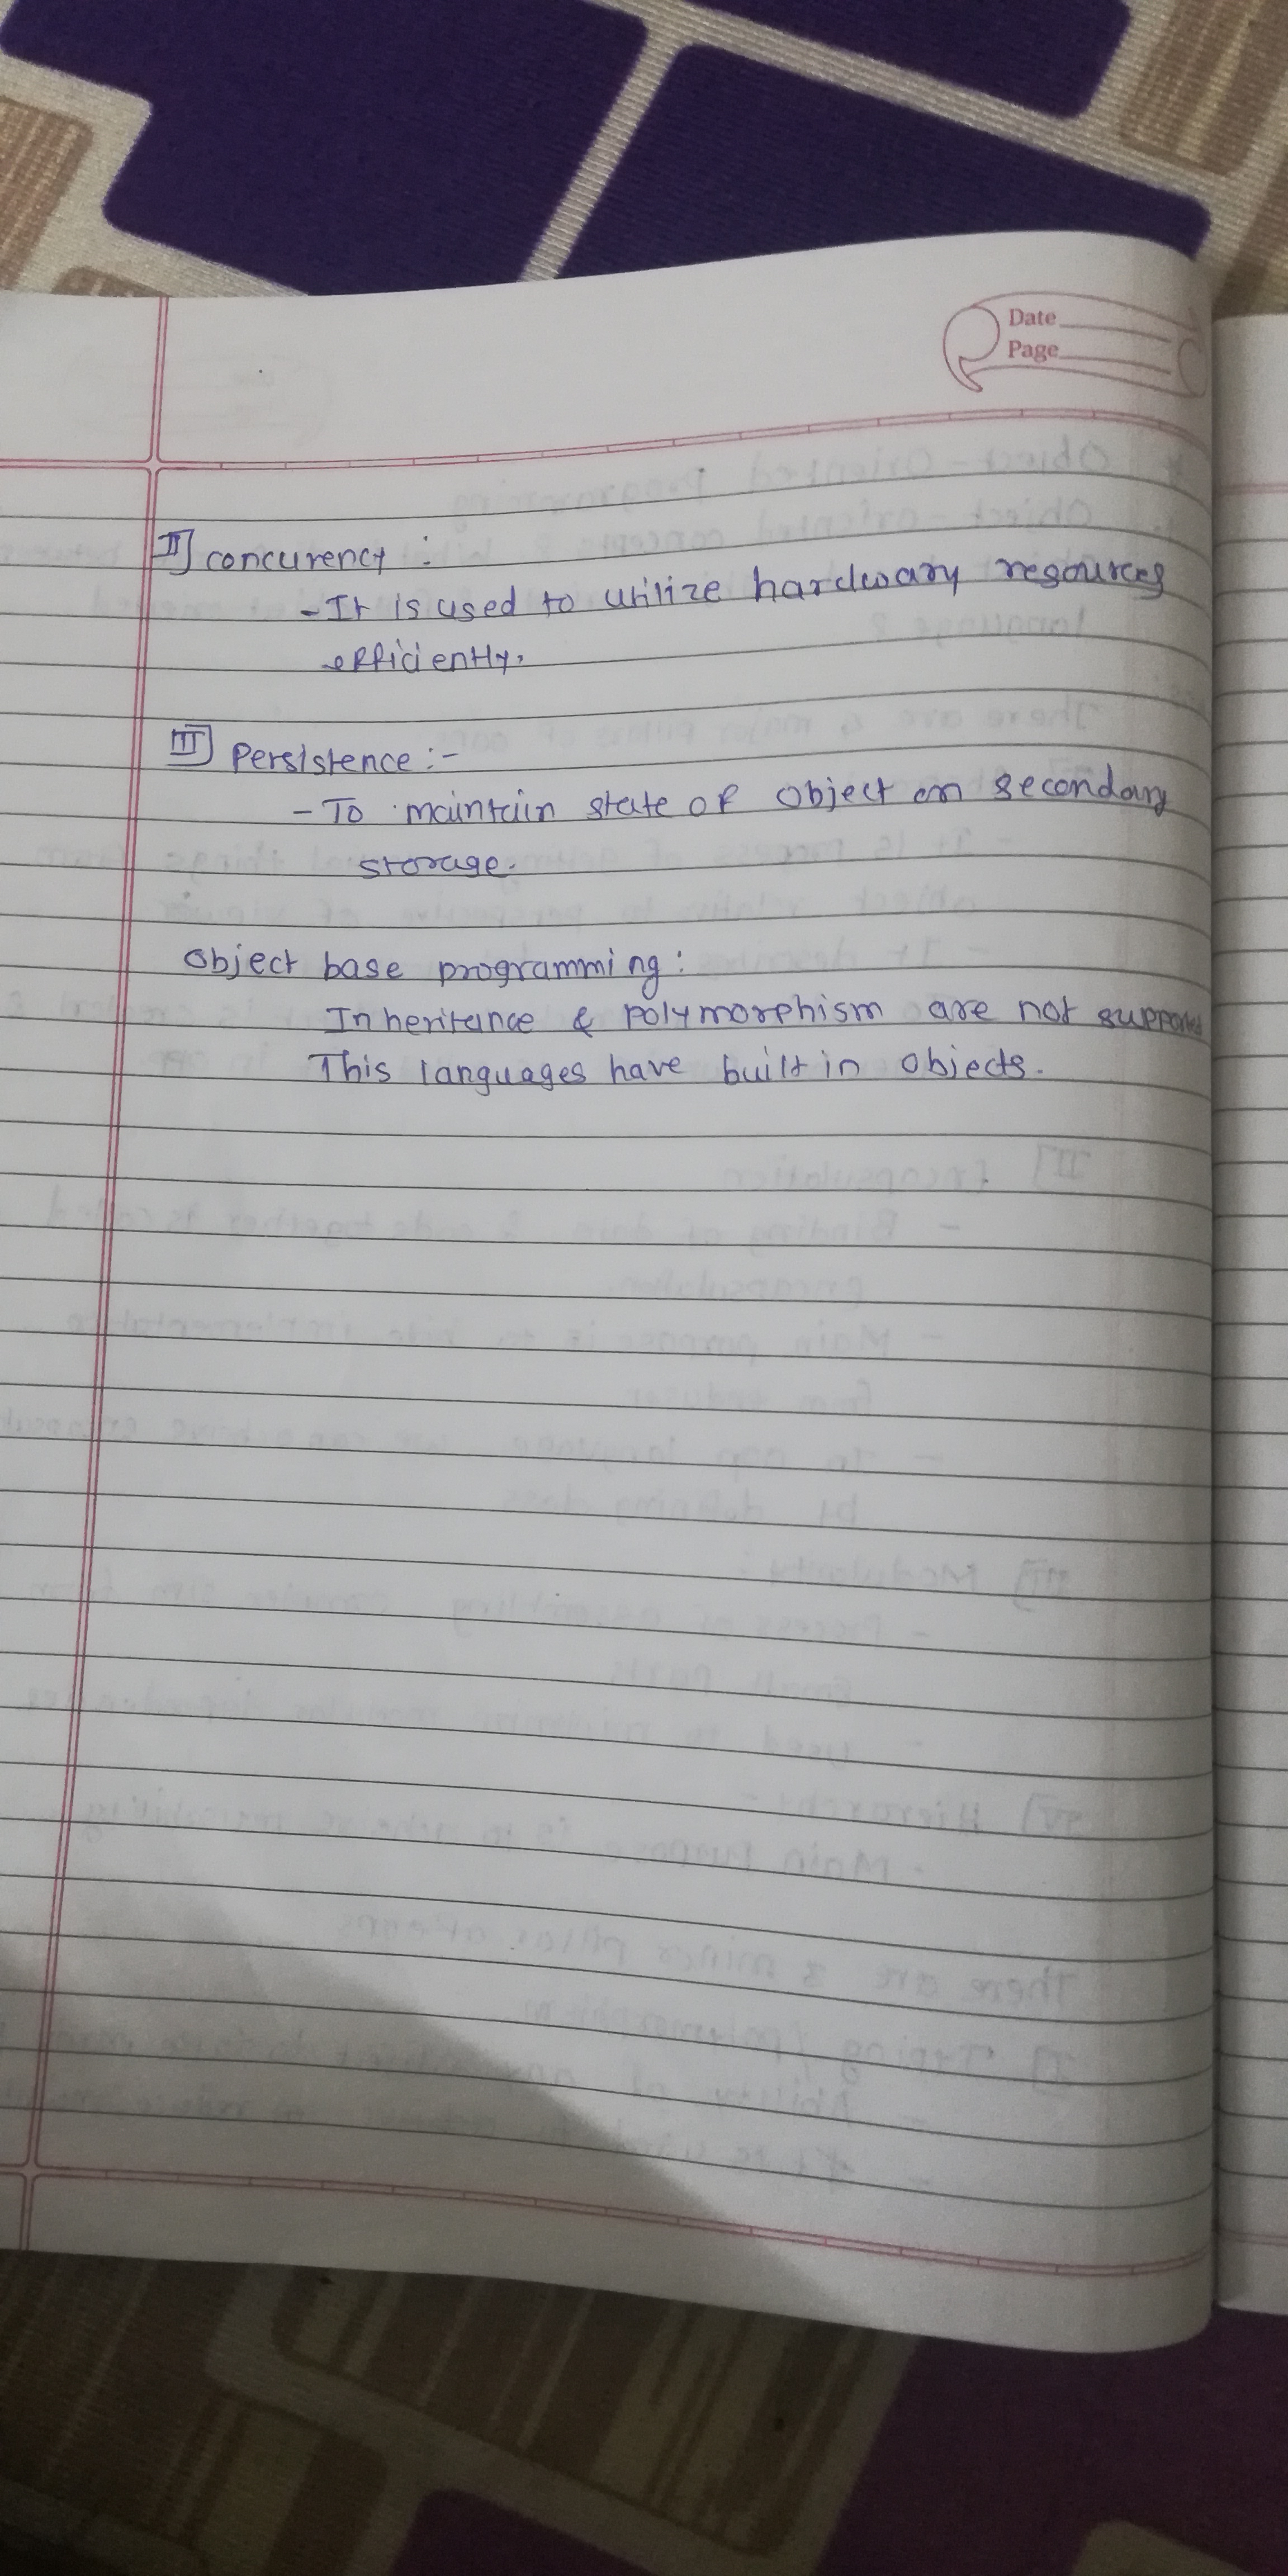 Date
Page
II] concurency :
- It is used to utilize hardwary resources
efficiently.
III] Persistence :-
- To maintain state of object on secondary
storage.
Object base programming :
Inheritance & polymorphism are not supported
This languages have built in objects.